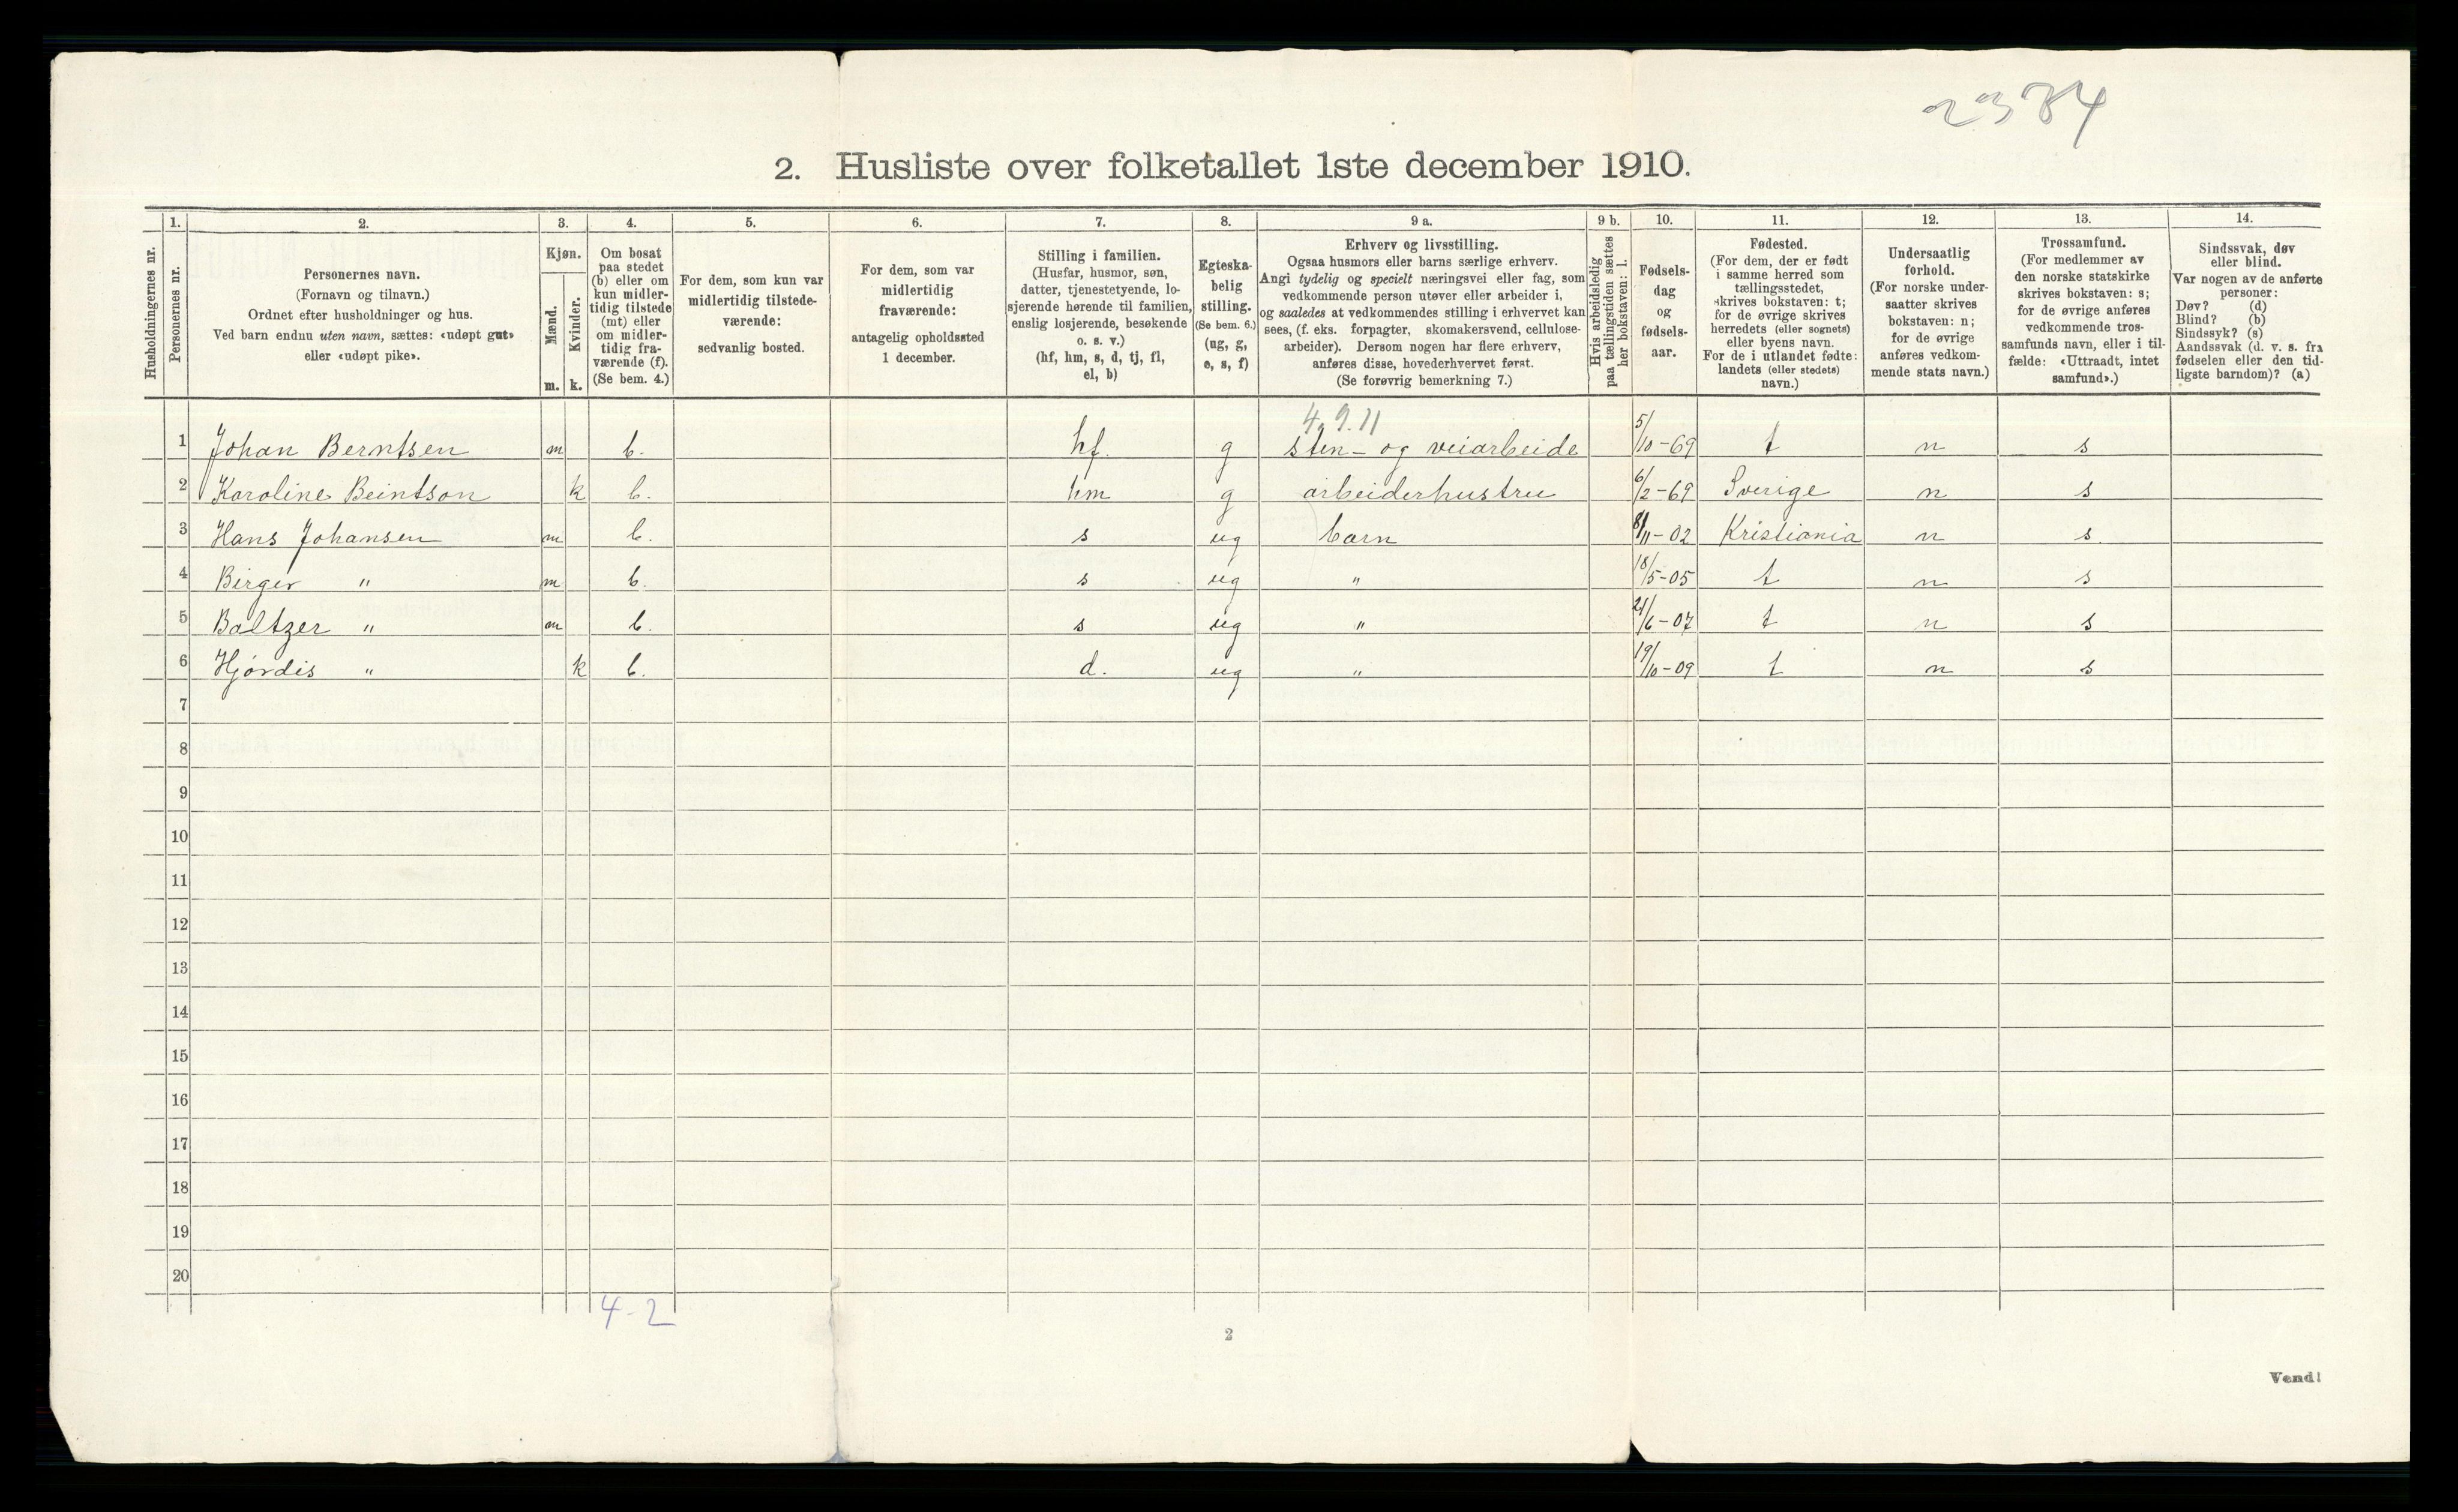 2384
2. Husliste over folketallet 1ste december 1910.
Husholdningernes nr.
1.
Personernes nr.
2.
Personernes navn.
(Fornavn og tilnavn.)
Ordnet efter husholdninger og hus.
Ved barn endnu uten navn, sættes: «udøpt gut»
eller «udøpt pike».
3.
Kjøn.
Mænd.
m.
Kvinder.
k.
4.
Om bosat
paa stedet
(b) eller om
kun midler-
tidig tilstede
(mt) eller
om midler-
tidig fra-
værende (f).
(Se bem. 4.)
5.
For dem, som kun var
midlertidig tilstede-
værende:
sedvanlig bosted.
6.
For dem, som var
midlertidig
fraværende:
antagelig opholdssted
1 december.
7.
Stilling i familien.
(Husfar, husmor, søn,
datter, tjenestetyende, lo-
sjerende hørende til familien,
enslig losjerende, besøkende
o. s. v.)
(hf, hm, s, d, tj, fl,
el, b)
8.
Egteska-
belig
stilling.
(Se bem. 6.)
(ug, g,
e, s, f)
9 a.
Erhverv og livsstilling.
Ogsaa husmors eller barns særlige erhverv.
Angi tydelig og specielt næringsvei eller fag, som
vedkommende person utøver eller arbeider i,
og saaledes at vedkommendes stilling i erhvervet kan
sees, (f. eks. forpagter, skomakersvend, cellulose-
arbeider). Dersom nogen har flere erhverv,
anføres disse, hovederhvervet først.
(Se forøvrig bemerkning 7.)
9 b.
Hvis arbeidsledig
paa tællingstiden sættes
her bokstaven: l.
10.
Fødsels-
dag
og
fødsels-
aar.
11.
Fødested.
(For dem, der er født
i samme herred som
tællingsstedet,
skrives bokstaven: t;
for de øvrige skrives
herredets (eller sognets)
eller byens navn.
For de i utlandet fødte:
landets (eller stedets)
navn.)
12.
Undersaatlig
forhold.
(For norske under-
saatter skrives
bokstaven: n;
for de øvrige
anføres vedkom-
mende stats navn.)
13.
Trossamfund.
(For medlemmer av
den norske statskirke
skrives bokstaven: s;
for de øvrige anføres
vedkommende tros-
samfunds navn, eller i til-
fælde: «Uttraadt, intet
samfund».)
14.
Sindssvak, døv
eller blind.
Var nogen av de anførte
personer:
Døv? (d)
Blind? (b)
Sindssyk? (s)
Aandssvak (d. v. s. fra
fødselen eller den tid-
ligste barndom)? (a)
4.9.11
1 Johan Berntsen m b. hf. g sten- og veiarbeide 5/10-69 t n s
2 Karoline Beintson k b. hm g arbeiderhustru 6/2-69 Sverige n s
3 Hans Johansen m b. s ug barn 8/11-02 Kristiania n s.
4 Birger " m b. s ug " 18/5-05 t n s
5 Baltzer " m b. s ug " 21/6-07 t n s
6 Hjørdis " k b. d. ug " 19/10-09 t n s
7
8
9
10
11
12
13
14
15
16
17
18
19
20
4-2
2
Vend!